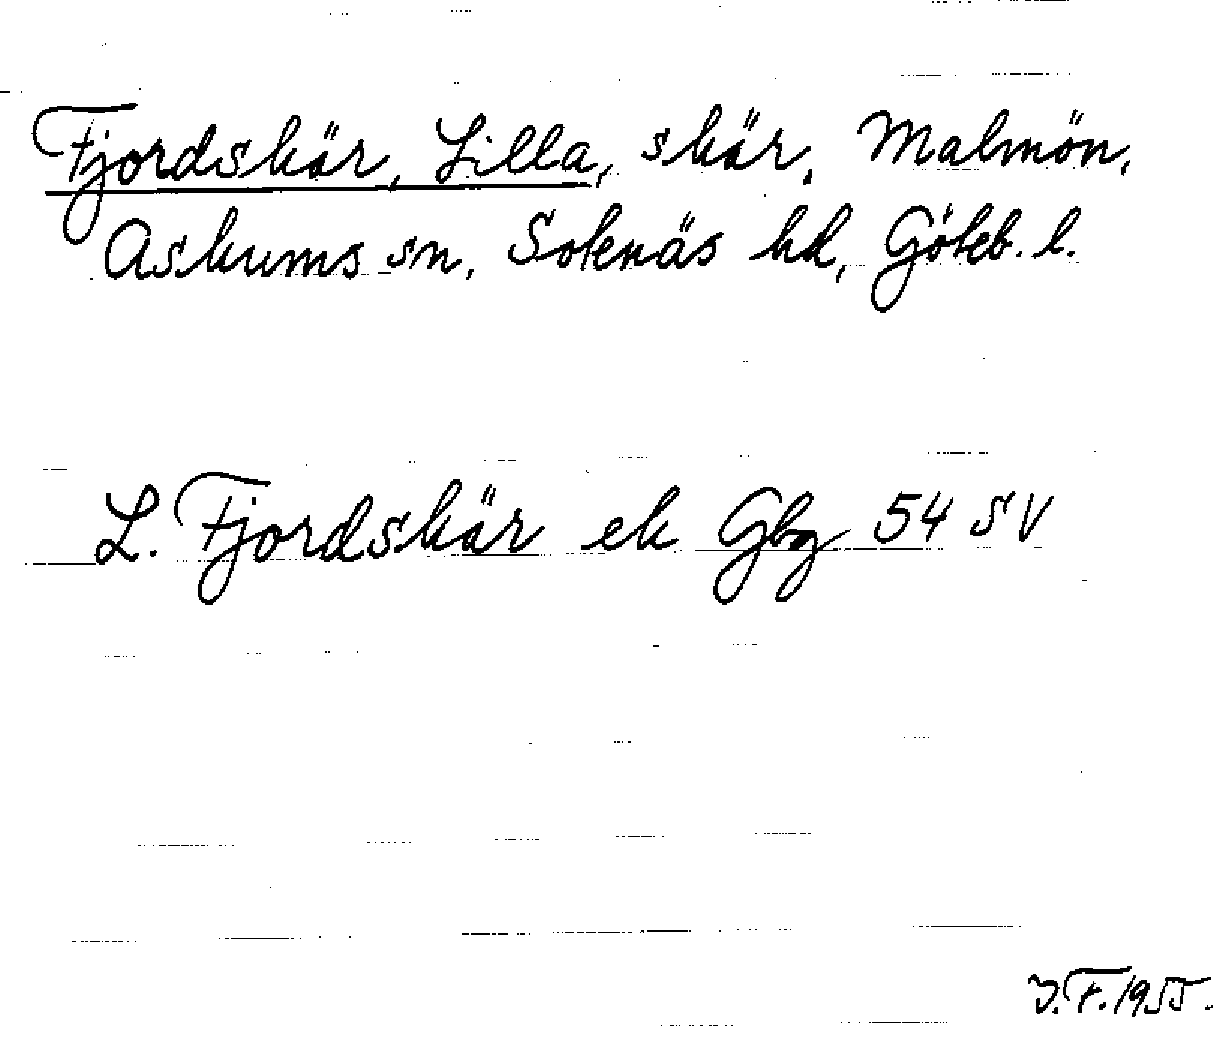 Fjordskär, Lilla, skär, Malmön,
Askums sn, Sotenäs hd, Göteb. l.
L. Fjordskär ek Gbg 54 SV
J.F. 1955.